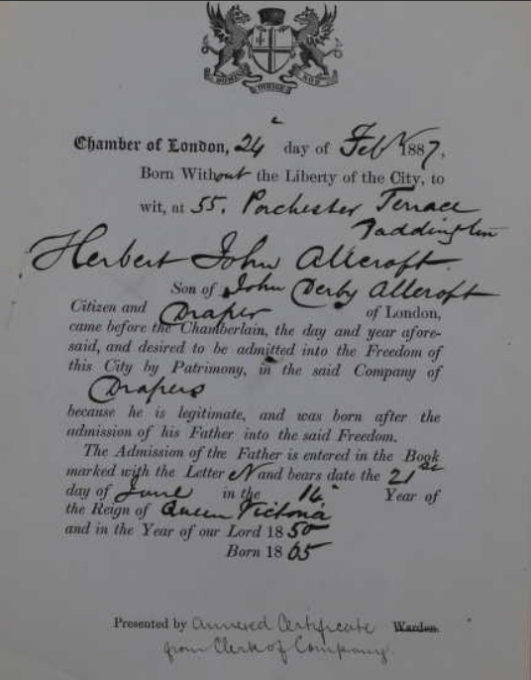 DOMINE DIRIGE NOS
Chamber of London, 24 day of Feb 1887,
Born Without the Liberty of the City, to
wit, at 55. Porchester Terrace
Paddington
Herbert John Allcroft.
Son of John Derby Allcroft
Citizen and Draper of London,
came before the Chamberlain, the day and year afore-
said, and desired to be admitted into the Freedom of
this City by Patrimony, in the said Company of
Drapers
because he is legitimate, and was born after the
admission of his Father into the said Freedom.
The Admission of the Father is entered in the Book
marked with the Letter N and bears date the 21st
day of June in the 14 Year of
the Reign of Queen Victoria
and in the Year of our Lord 1850
Born 1865
Presented by Annexed Certificate Warden.
from Clerk of Company.